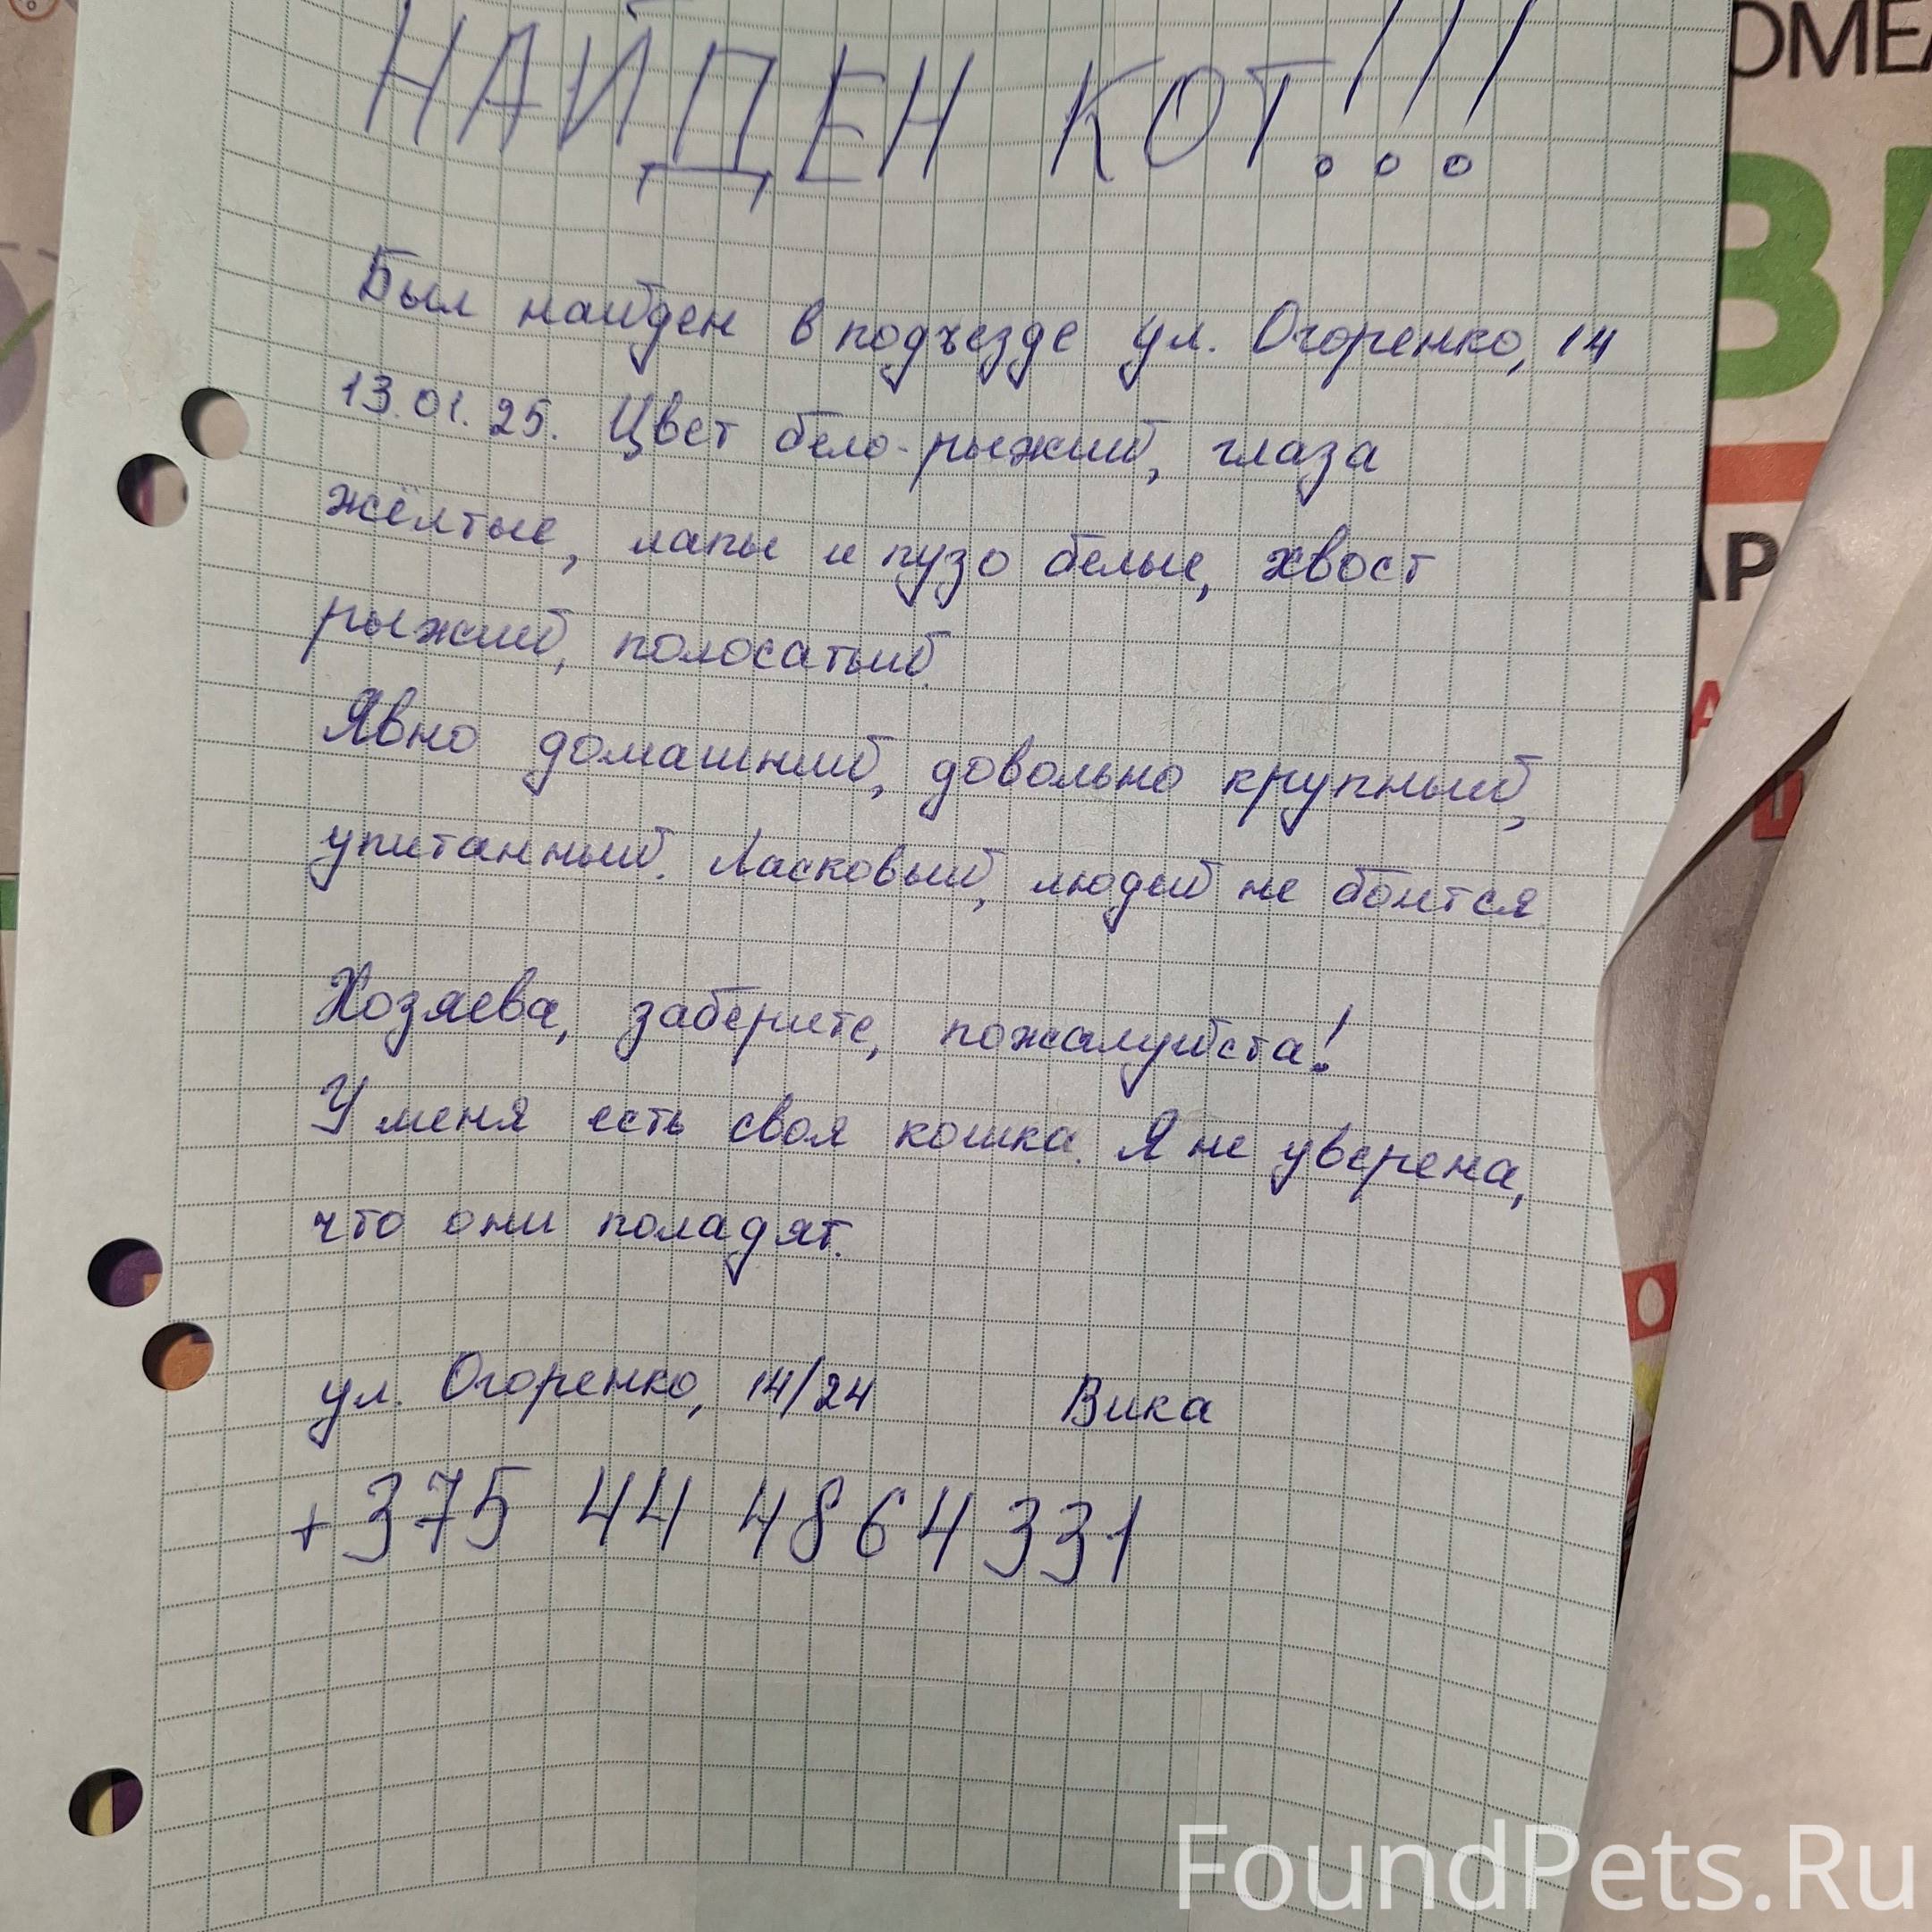 НАЙДЕН КОТ!!!
Был найден в подъезде ул. Огоренко, 14
13.01.25. Цвет бело-рыжий, глаза
жёлтые, лапы и пузо белые, хвост
рыжий, полосатый.
Явно домашний, довольно крупный,
упитанный. Ласковый, людей не боится.
Хозяева, заберите, пожалуйста!
У меня есть своя кошка. Я не уверена,
что они поладят.
ул. Огоренко, 14/24 Вика
+375 44 4864331
FoundPets.Ru